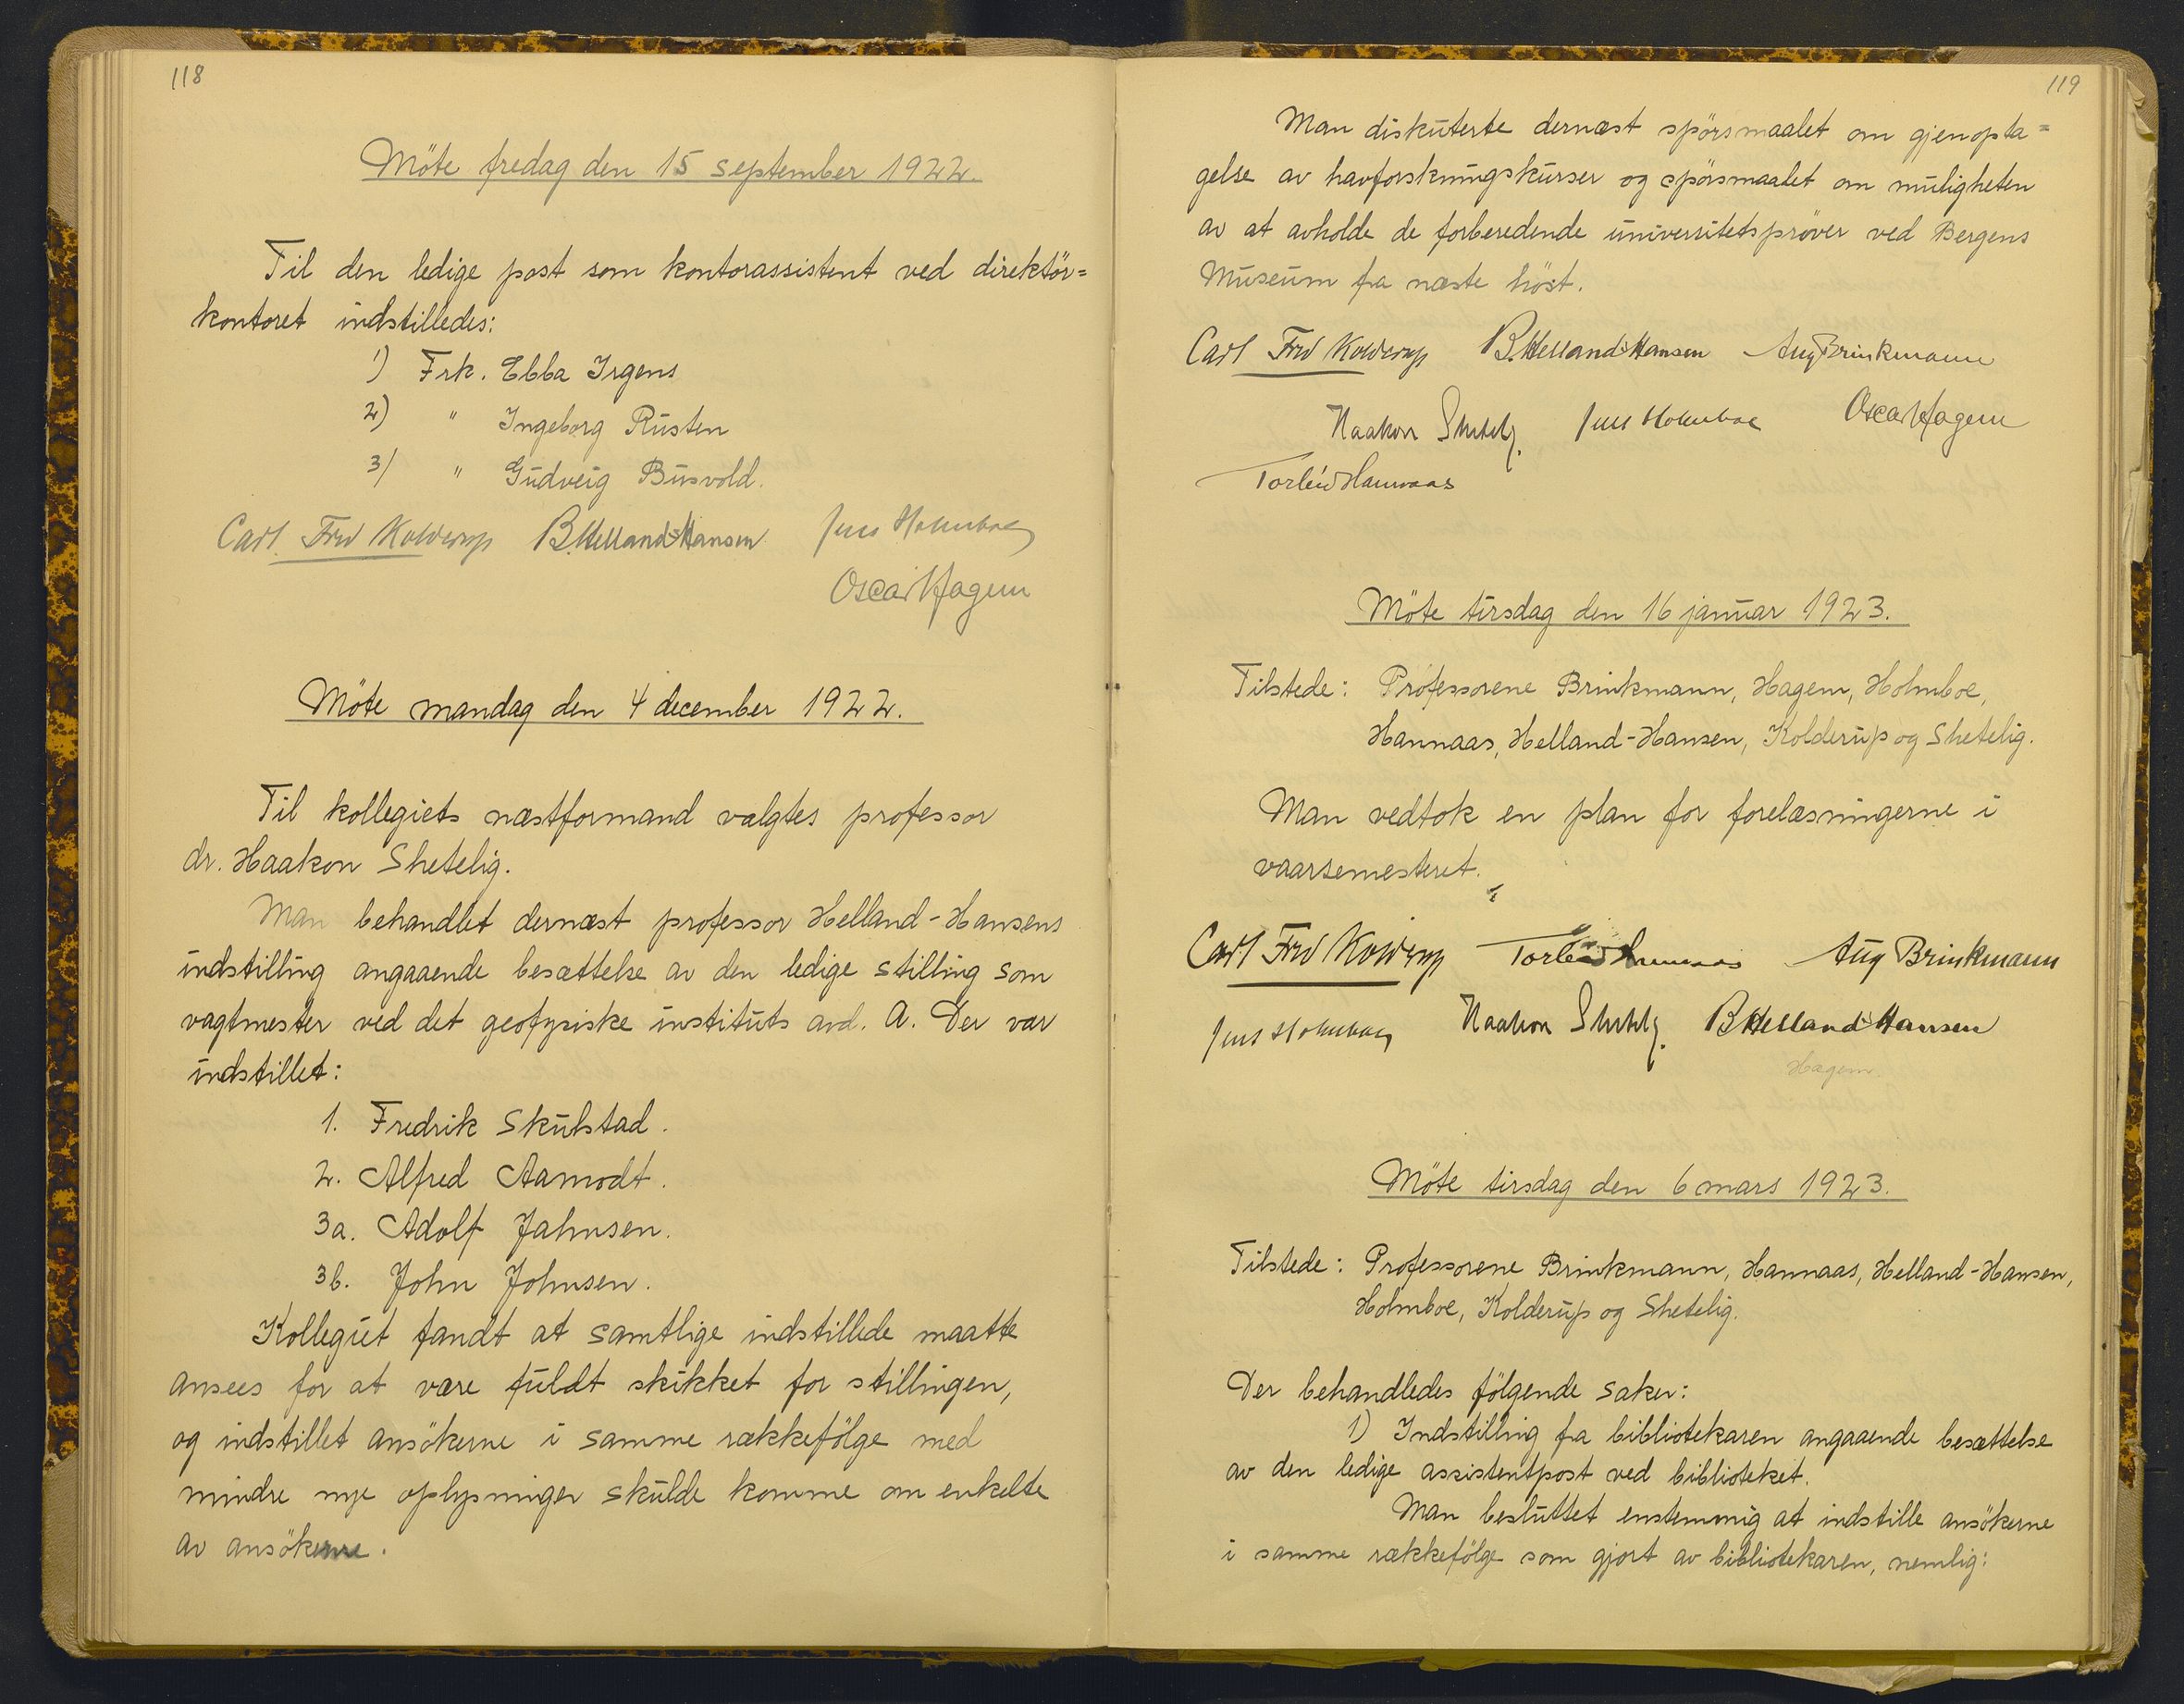 118
Möte fredag den 15 september 1922.
Til den ledige post som kontorassistent ved direktör=
kontoret indstilledes:
1) Frk. Ebba Irgens
2) " Ingeborg Rusten
3) " Gudveig Busvold.
Carl Fred Kolderup B. Helland-Hansen Jens Holmboe
Oscar Hagem
Möte mandag den 4 december 1922.
Til kollegiets næstformand valgtes professor
dr. Haakon Shetelig.
Man behandlet dernæst professor Helland-Hansens
indstilling angaaende besættelse av den ledige stilling som
vagtmester ved det geofysiske instituts avd. A. Der var
indstillet:
1. Fredrik Skulstad.
2. Alfred Aamodt.
3a. Adolf Jahnsen.
3b. John Johnsen.
Kollegiet fandt at samtlige indstillede maatte
ansees for at være fuldt skikket for stillingen,
og indstillet ansökerne i samme rækkefölge med
mindre nye oplysninger skulde komme om enkelte
av ansökerne.
119
Man diskuterte dernæst spörsmaalet om gjenopta=
gelse av havforskningskurser og spörsmaalet om muligheten
av at avholde de forberedende universitetsprøver ved Bergens
Museum fra næste höst.
Carl Fred Kolderup B. Helland-Hansen Aug Brinkmann
Haakon Shetelig. Jens Holmboe Oscar Hagem
Torleiv Hannaas
Möte tirsdag den 16 januar 1923.
Tilstede: Professorene Brinkmann, Hagem, Holmboe,
Hannaas, Helland-Hansen, Kolderup og Shetelig.
Man vedtok en plan for forelæsningerne i
vaarsemesteret.
Carl Fred Kolderup Torleiv Hannaas Aug Brinkmann
Jens Holmboe Haakon Shetelig. B Helland-Hansen
Hagem.
Möte tirsdag den 6 mars 1923.
Tilstede: Professorene Brinkmann, Hannaas, Helland-Hansen,
Holmboe, Kolderup og Shetelig.
Der behandledes fölgende saker:
1) Indstilling fra bibliotekaren angaaende besættelse
av den ledige assistentpost ved biblioteket.
Man besluttet enstemmig at indstille ansökerne
i samme rækkefölge som gjort av bibliotekaren, nemlig: